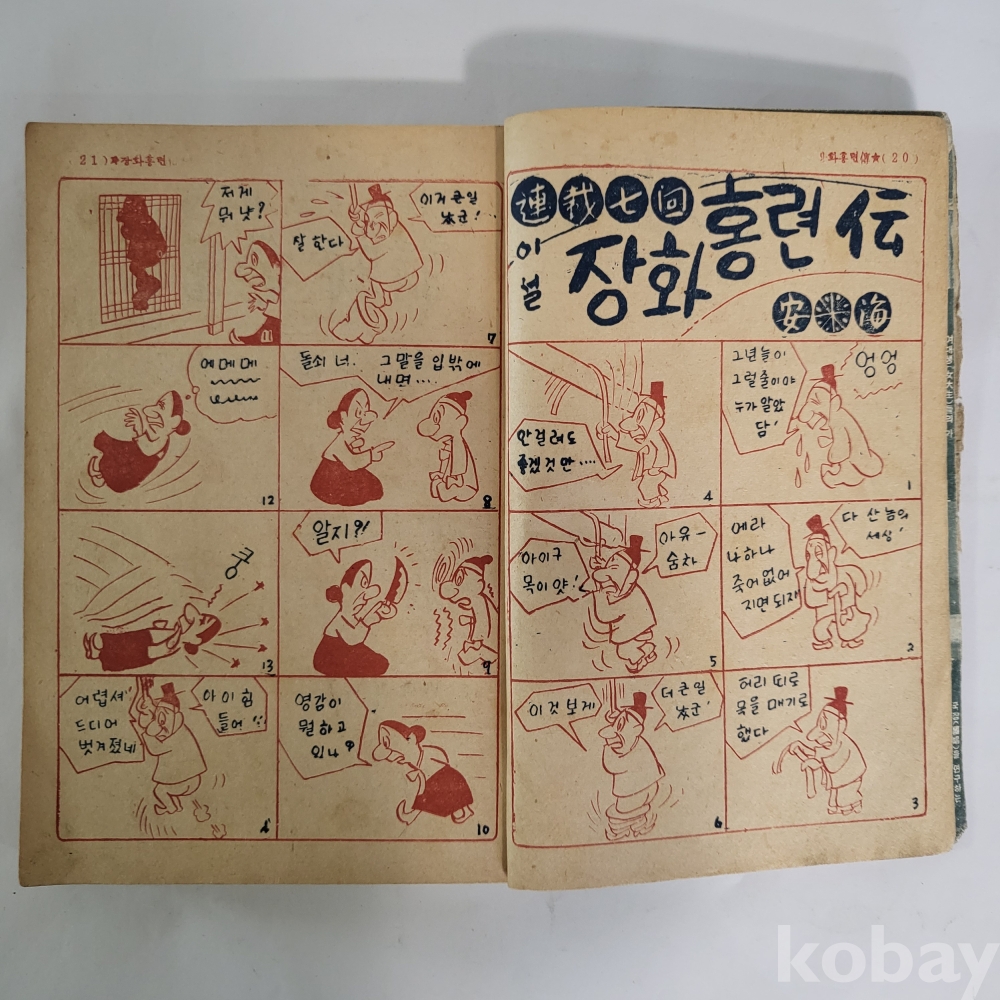 화홍련傳★(20)
連載七回
이설
장화홍련伝
安米海
엉엉
그년놈이
그럴줄이야
누가알았
담!
1
다 산놈의
세상!
에라
나하나
죽어없어
지면되재
2
허리띠로
목을매기로
했다
3
안걸려도
좋겠것만....
4
아유-
숨차
아이구
목이얏!
5
더큰일
났군!
이것보게
6
21)★장화홍련
이거큰일
났군!..
잘한다
7
돌쇠 너. 그말을입밖에
내면....
8
알지?!
9
영감이
뭘하고
있나?
10
저게
뭐낫?
11
에메메
12
쿵
13
아이힘
들어
어렵셔!
드디어
벗겨졌네